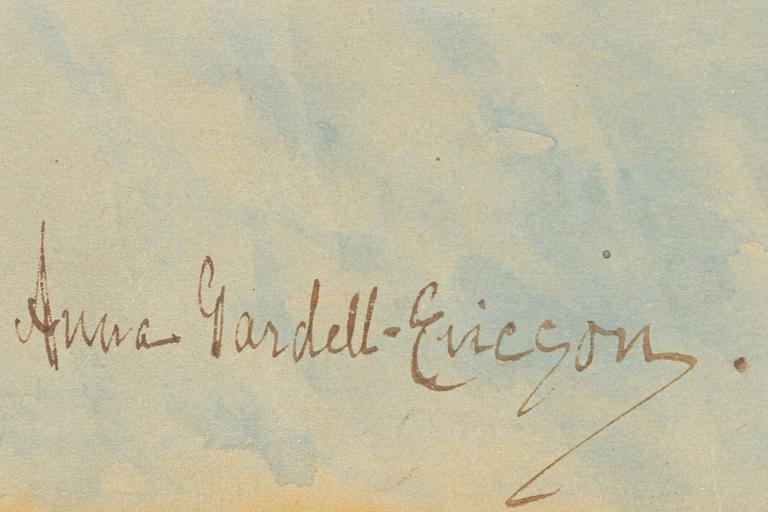 Anna Gardell-Ericson.